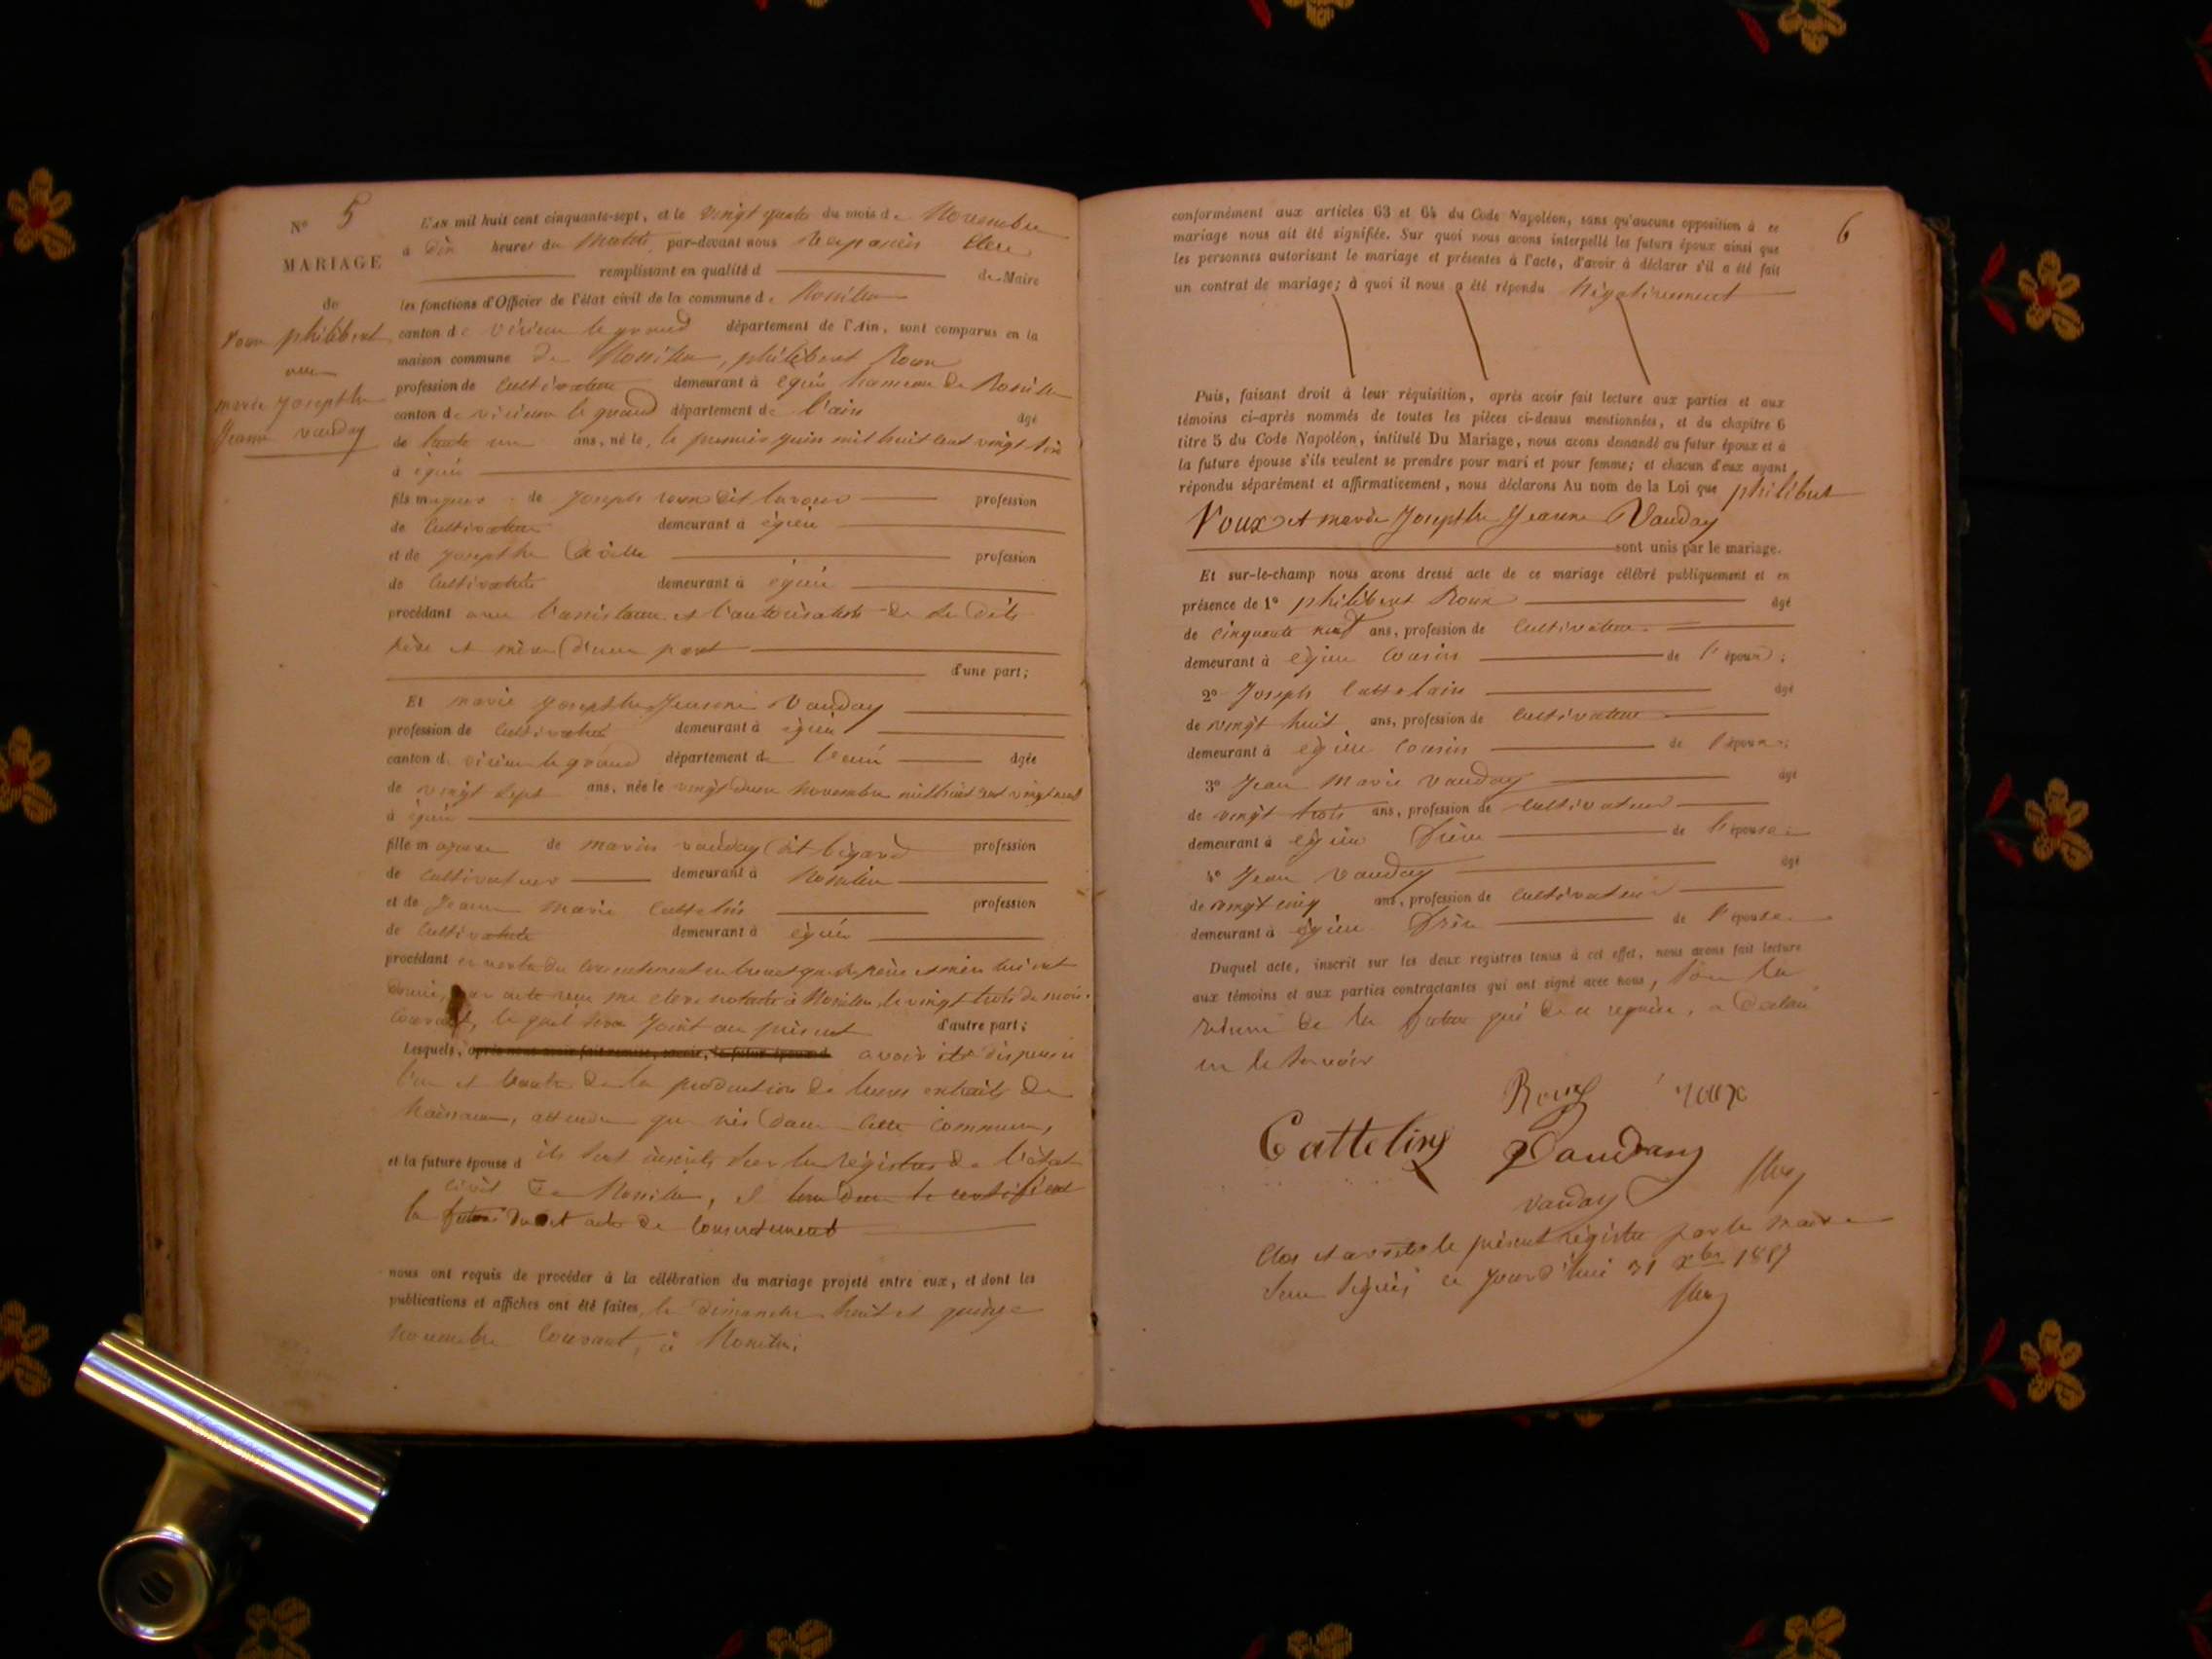 N° 5
MARIAGE
de
Roux philibert
avec
marie josephte
Jeanne vauday
L'AN mil huit cent cinquante-sept, et le vingt quatre du mois de Novembre
à Dix heures du Matin, par-devant nous Clerc
remplissant en qualité d de Maire
les fonctions d'Officier de l'état civil de la commune de Rossillon
canton de virieu le grand département de l'Ain, sont comparus en la
maison commune de Rossillon, philibert Roux
profession de Cultivateur demeurant à égieu hameau de Rossillon
canton de virieu le grand département de l'ain âgé
de trente un ans, né le, le premier juin mil huit cent vingt six
à égieu
fils majeur de Joseph roux dit profession
de Cultivateur demeurant à égieu
et de josephte profession
de Cultivatrice demeurant à égieu
procédant avec l'assistance et l'autorisation de se dits
père et mère d'une part
d'une part;
Et marie josephte Jeanne Vauday
profession de Cultivatrice demeurant à égieu
canton de virieu le grand département de l'ain âgée
de vingt sept ans, née le vingt deux novembre mil huit cent vingt neuf
à égieu
fille majeure de marin vauday dit bigard profession
de Cultivateur demeurant à Rossillon
et de Jeanne marie Cattelin profession
de Cultivatrice demeurant à égieu
procédant en vertu du consentement authentique de père et mère lui ont
donné, par acte reçu me clerc notaire à Rossillon, le vingt trois du mois
Courant, le quel sera joint au présent d'autre part;
Lesquels, après nous avoir fait remise, savoir, le futur époux d avoir été dispensés
l'un et l'autre de la production de leurs extraits de
naissance, attendu que nés dans cette commune,
et la future épouse d ils sont inscrits sur les régistres de l'état
civil de Rossillon, et
la future du dit acte de consentement
nous ont requis de procéder à la célébration du mariage projeté entre eux, et dont les
publications et affiches ont été faites, le dimanche huit et quinze
novembre Courant, à Rossillon
6
conformément aux articles 63 et 64 du Code Napoléon, sans qu'aucune opposition à ce
mariage nous ait été signifiée. Sur quoi nous avons interpellé les futurs époux ainsi que
les personnes autorisant le mariage et présentes à l'acte, d'avoir à déclarer s'il a été fait
un contrat de mariage; à quoi il nous a été répondu Négativement
Puis, faisant droit à leur réquisition, après avoir fait lecture aux parties et aux
témoins ci-après nommés de toutes les pièces ci-dessus mentionnées, et du chapitre 6
titre 5 du Code Napoléon, intitulé Du Mariage, nous avons demandé au futur époux et à
la future épouse s'ils veulent se prendre pour mari et pour femme; et chacun d'eux ayant
répondu séparément et affirmativement, nous déclarons Au nom de la Loi que philibert
Roux et marie Josephte Jeanne Vauday
sont unis par le mariage.
Et sur-le-champ nous avons dressé acte de ce mariage célébré publiquement et en
présence de 1° philibert Roux âgé
de cinquante neuf ans, profession de Cultivateur
demeurant à égieu Cousin de l'époux;
2° Joseph Cattelain âgé
de vingt huit ans, profession de Cultivateur
demeurant à égieu Cousin de l'époux;
3° Jean Marie Vauday âgé
de vingt trois ans, profession de Cultivateur
demeurant à égieu frère de l'épouse
4° Jean Vauday âgé
de vingt cinq ans, profession de Cultivateur
demeurant à égieu frère de l'épouse
Duquel acte, inscrit sur les deux registres tenus à cet effet, nous avons fait lecture
aux témoins et aux parties contractantes qui ont signé avec nous, sous la
réserve de la future qui de ce requise, a déclaré
ne le savoir
Roux roux
Cattelin Vauday
vauday
Clos et arrêté le présent régistre par le maire
soussigné ce jourd'hui 31 xbre 1857